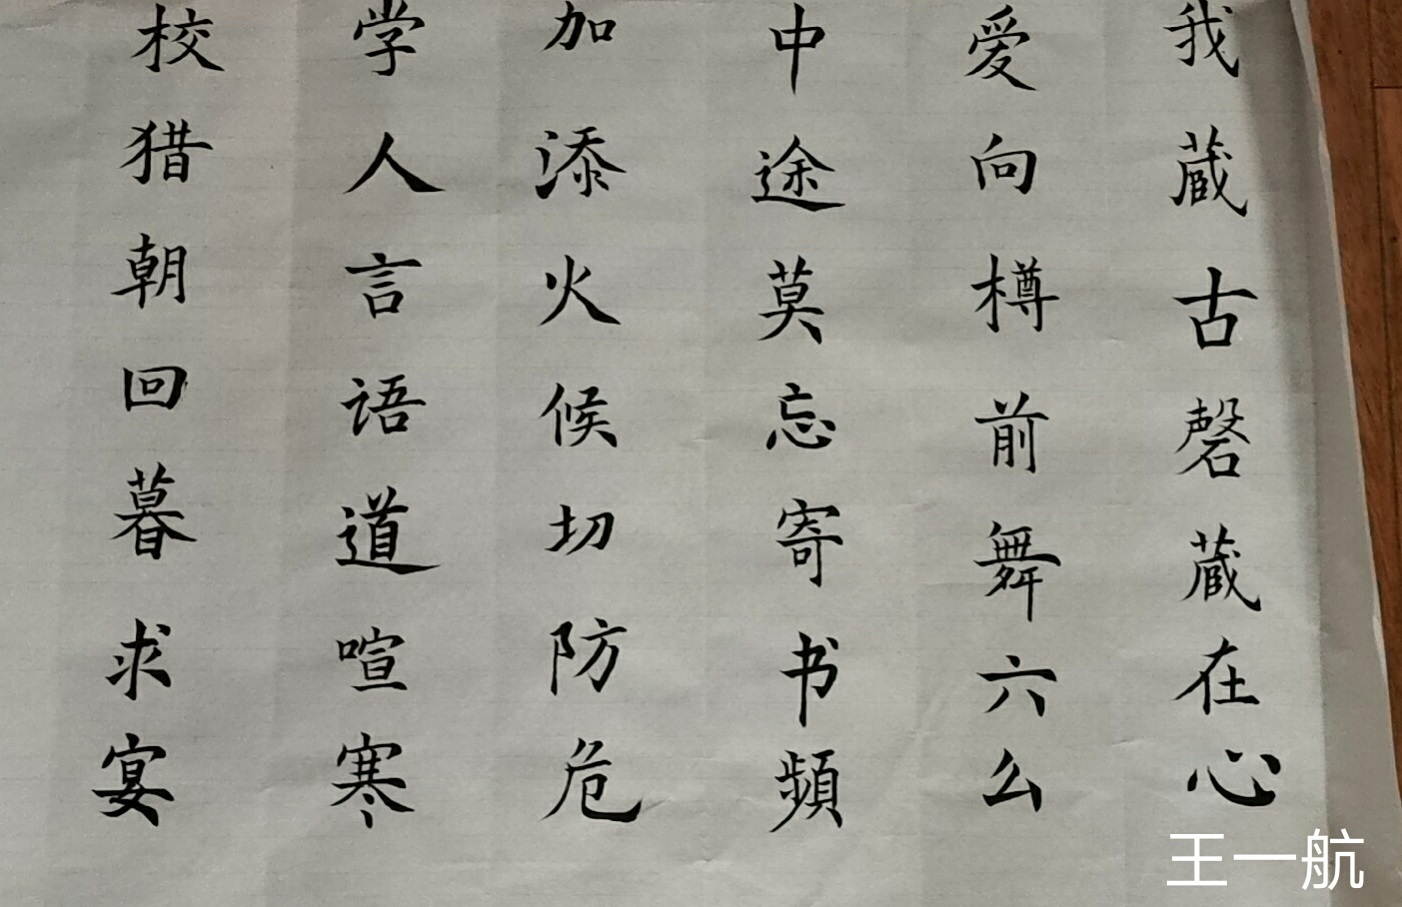 我蔵古磬蔵在心
爱向樽前舞六么
中途莫忘寄书頻
加添火候切防危
学人言语道喧寒
校猎朝回暮求宴
王一航